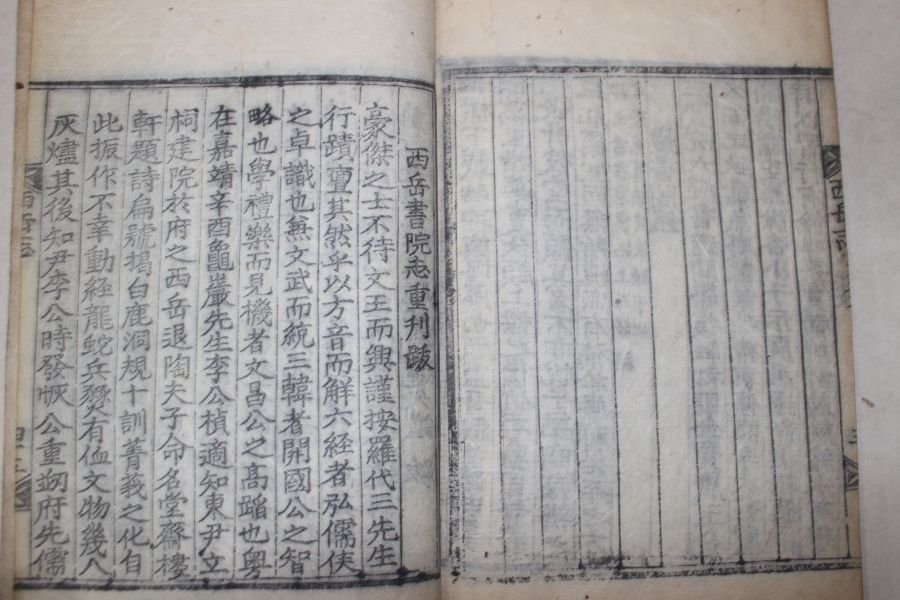 西岳志
西岳書院志重刊跋
豪傑之士不待文王而興謹按羅代三先生
行蹟亶其然乎以方音而解六経者弘儒侯
之卓識也兼文武而統三韓者開國公之智
略也學禮樂而見機者文昌公之高蹈也粤
在嘉靖辛酉龜巖先生李公楨適知東尹立
祠建院於府之西岳退陶夫子命名堂齋樓
軒題詩扁號揭白鹿洞規十訓菁莪之化自
此振作不幸動経龍蛇兵燹有侐文物幾入
灰燼其後知尹李公時發恢公重刱府先儒
西岳志